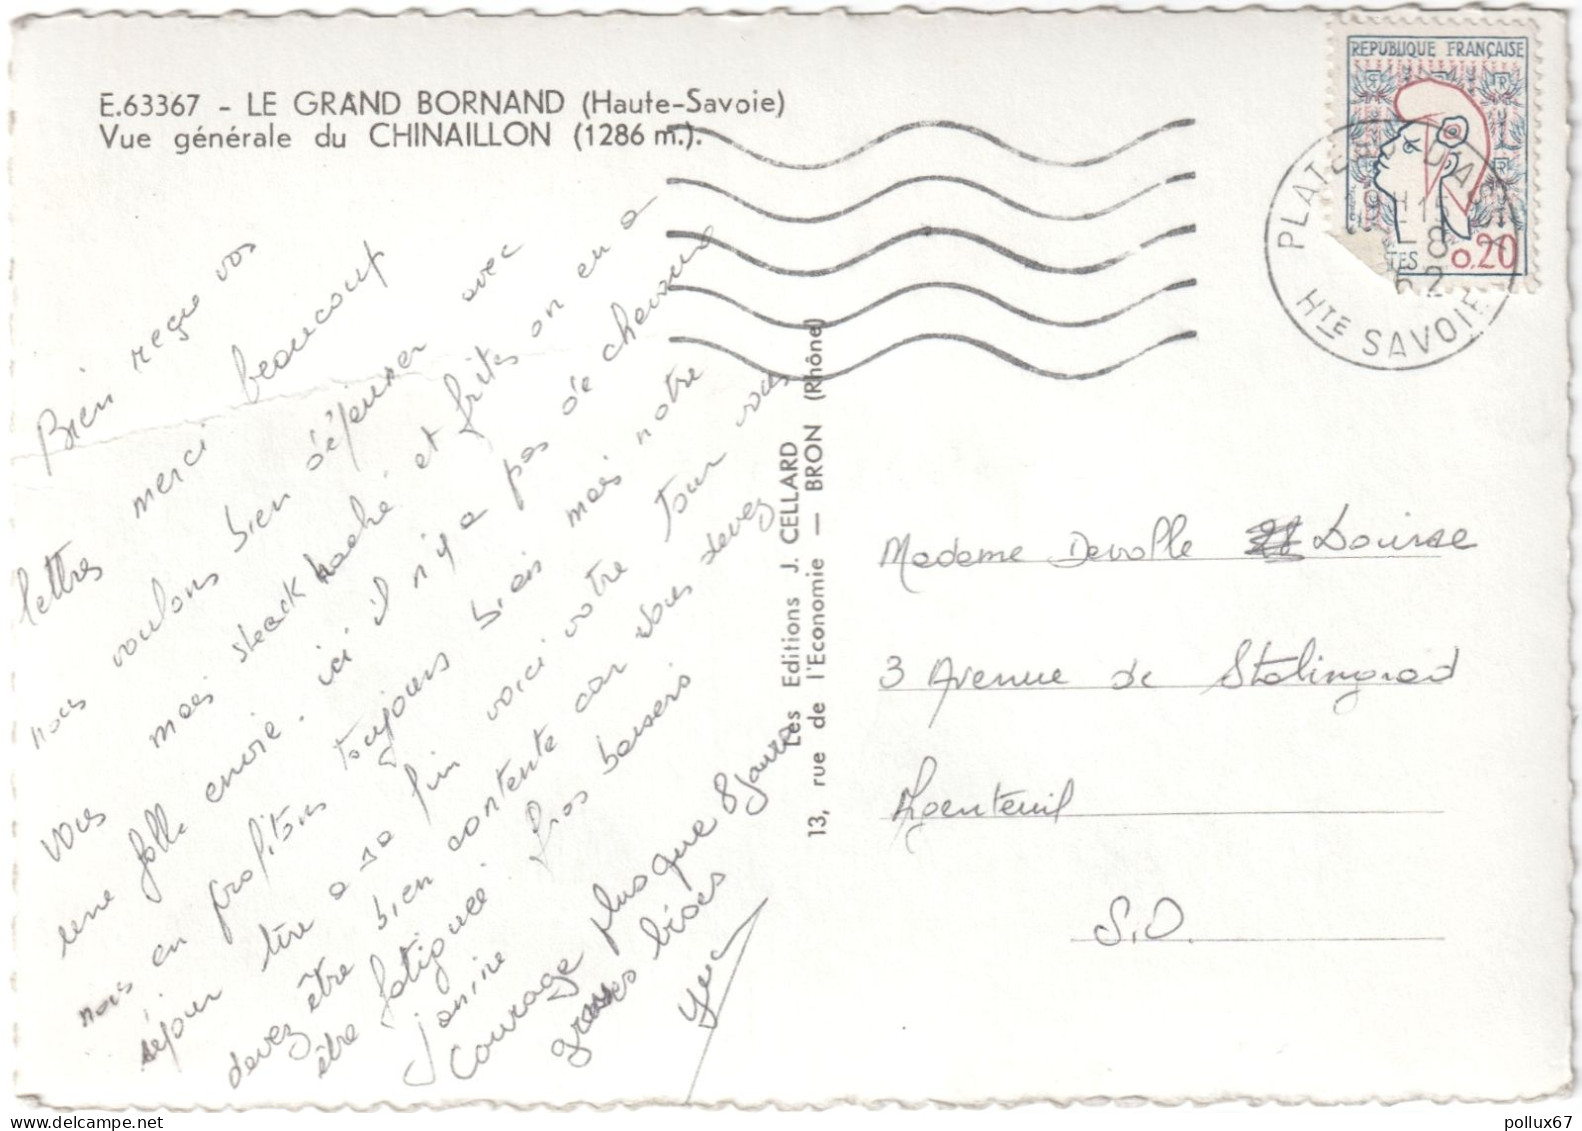 E.63367 - LE GRAND BORNAND (Haute-Savoie)
Vue générale du CHINAILLON (1286 m.).
Bien reçu vos
lettres merci beaucoup
nous voulons bien déjeuner avec
vous mais steack haché et frites on en a
une folle envie. ici il n'y a pas de chevaux
nous en profitons toujours bien mais notre
séjour tire a sa fin voici votre tour vous
devez être bien contente car vous devez
être fatiguée. gros baisers
Janine
Courage plus que 8 jours
grosses bises
Les Editions J. CELLARD
13, rue de l'Economie — BRON (Rhône)
REPUBLIQUE FRANÇAISE
TES 0,20
PLAT
19 H
8
62
HTE SAVOIE
Madame Devolle Louise
3 Avenue de Stalingrad
Argenteuil
S.O.
pollux67